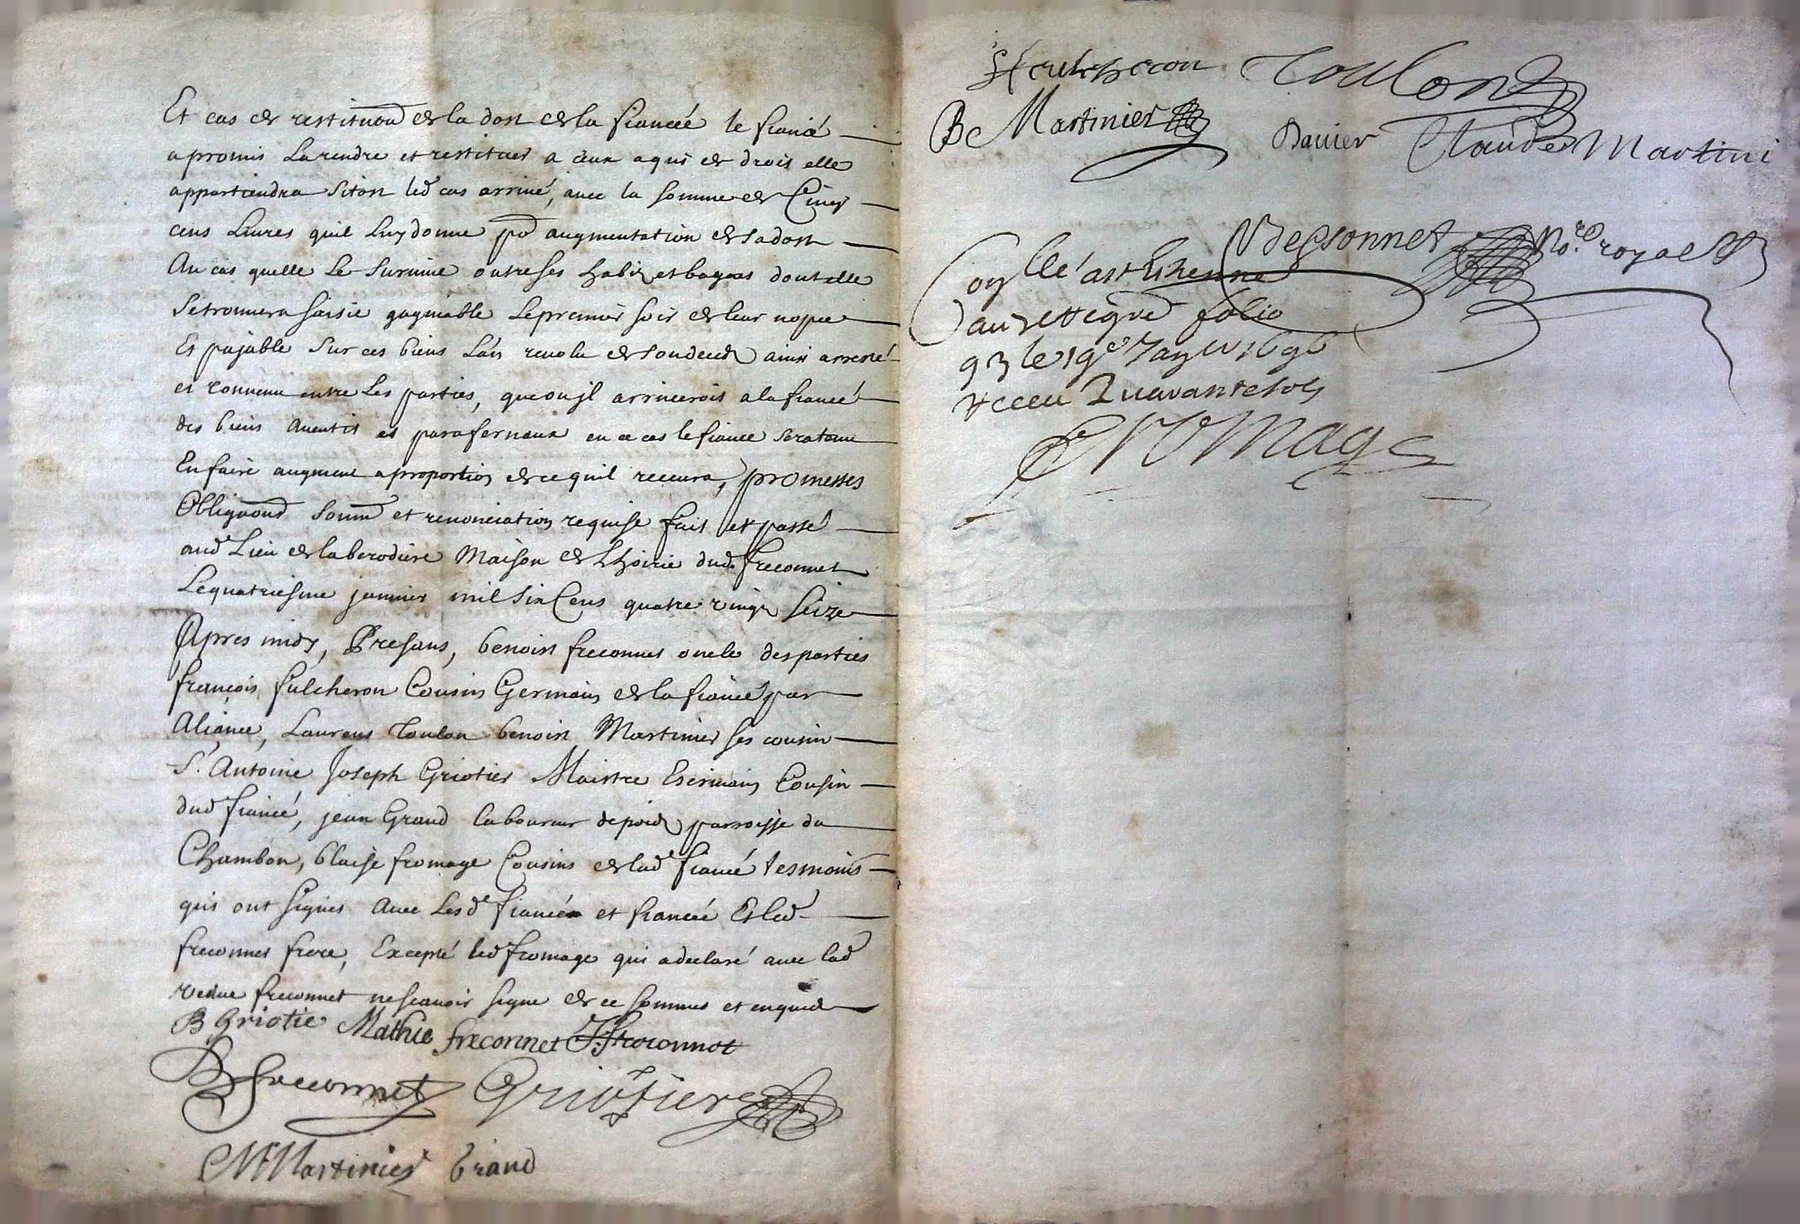 Et cas de restitution de la dost de la fiancéé le fiancé
a promis La rendre et restituer a ceux a qui de droit elle
appartiendra sitost led cas arrivé, avec la somme de Cinq
cens Livres quil Luy donne po augmentation de sa dost
Au cas quelle Le survive outre ses habis et bagues dont elle
se trouvera saisie gagniable Le premier soir de leur nopce
Et pajable sur ces biens Lan revolu de son deceds ainsi arresté
et convenu entre Les parties, que ou jl arriveroit a la fiancéé
des biens aventis et parafernaux en ce cas le fiance sera tenu
En faire augment a proportion de ce quil recevra, promesses
Obligaons soum et renonciation requise fait et passé
aud Lieu de la berodiere Maison de Lhoirie dud. freconnet
Le quatriesme janvier mil six Cens quatre vingt seize
Apres midy, Presans, benoist freconnet oncle des parties
françois fulcheron Cousin Germain de la fiancéé par
Aliance, Laurens Toulon benoist Martinier ses cousins
S. Antoine Joseph Griotier Maistre Escrivain Cousin
dud fiancé, jean Grand laboureur parroisse du
Chambon, blaise fromage Cousins de lad fiancéé tesmoins
qui ont signes Avec Lesd fiancé et fiancéé Et led
freconnet frere, Excepté led fromage qui a declaré avec lad
vedve freconnet ne scavoir signe de ce sommes et enquis
B Griotie Mathie freconnet J. freconnet
B freconnet Griotier
M Martinier Grand
fulcheron Toulon
Be Martinier Davier Claude Martini
Desonnet No.re royal
folio
93 le 19e 1696
Receu Quarante sols